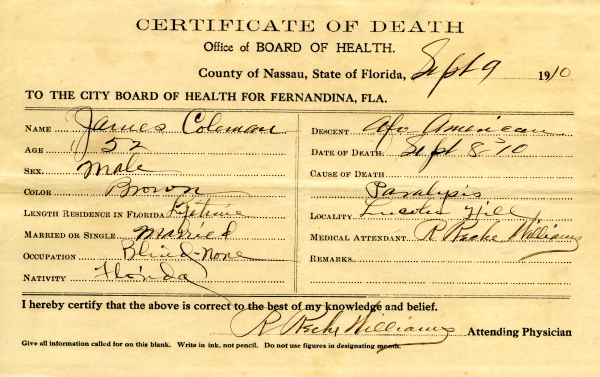 CERTIFICATE OF DEATH
Office of BOARD OF HEALTH.
County of Nassau, State of Florida, Sept 9 1910
TO THE CITY BOARD OF HEALTH FOR FERNANDINA, FLA.
NAME James Coleman
AGE 52
SEX. Male
COLOR Brown
LENGTH RESIDENCE IN FLORIDA Lifetime
MARRIED OR SINGLE Married
OCCUPATION Blind-none
NATIVITY Florida
DESCENT. Afr American
DATE OF DEATH. Sept 8 10
CAUSE OF DEATH
Paralysis
LOCALITY. Lincoln Hill
MEDICAL ATTENDANT R Williams
REMARKS
I hereby certify that the above is correct to the best of my knowledge and belief.
R Williams Attending Physician
Give all information called for on this blank. Write in ink, not pencil. Do not use figures in designating month.